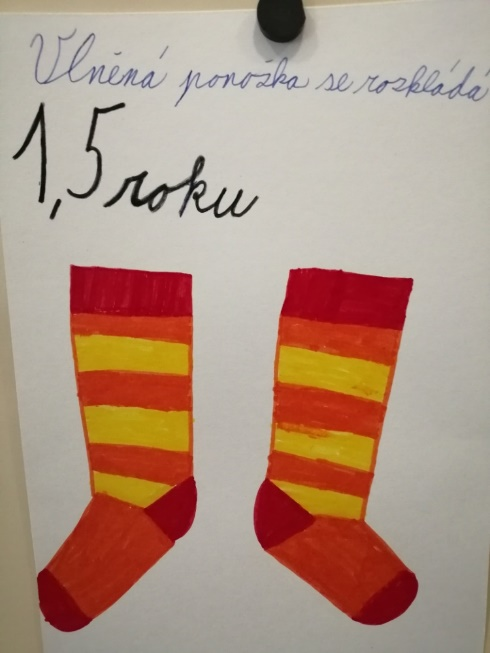 Vlněná ponožka se rozkládá
1,5 roku